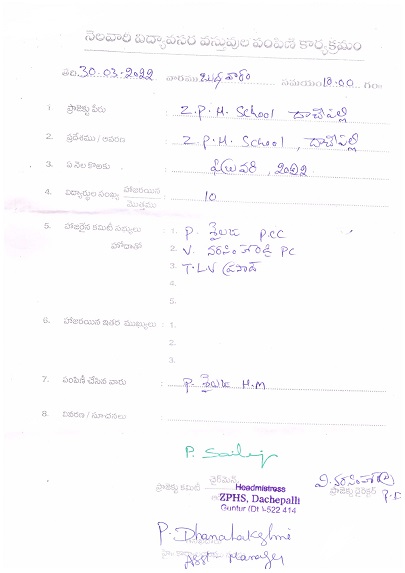 నెలవారీ విద్యావసర వస్తువుల పంపిణీ కార్యక్రమం
తేది 30.03.2022 వారము బుధవారం సమయం 10:00 గం॥
1. ప్రాజెక్టు పేరు : Z.P.H. School దాచేపల్లి
2. ప్రదేశము / ఆవరణ : Z.P.H. School, దాచేపల్లి
3. ఏ నెల కొఱకు : ఫిబ్రవరి, 2022
4. విద్యార్థుల సంఖ్య హాజరయిన : 10
మొత్తము
5. హాజరైన కమిటీ సభ్యులు : 1. P. శైలజ P.CC
హోదాతో 2. V. నరసింహారెడ్డి PC
3. T.L.V ప్రసాద్
4.
5.
6. హాజరయిన ఇతర ముఖ్యులు : 1.
2.
3.
7. పంపిణీ చేసిన వారు : P. శైలజ H.M
8. వివరణ / సూచనలు :
P. Sailaja
ఛైర్మెన్
ప్రాజెక్టు కమిటీ Headmistress
ZPHS, Dachepalli
Guntur (Dt)-522 414
ప్రాజెక్టు డైరెక్టర్ P.D
P. Dhanalakshmi
Asst. Manager